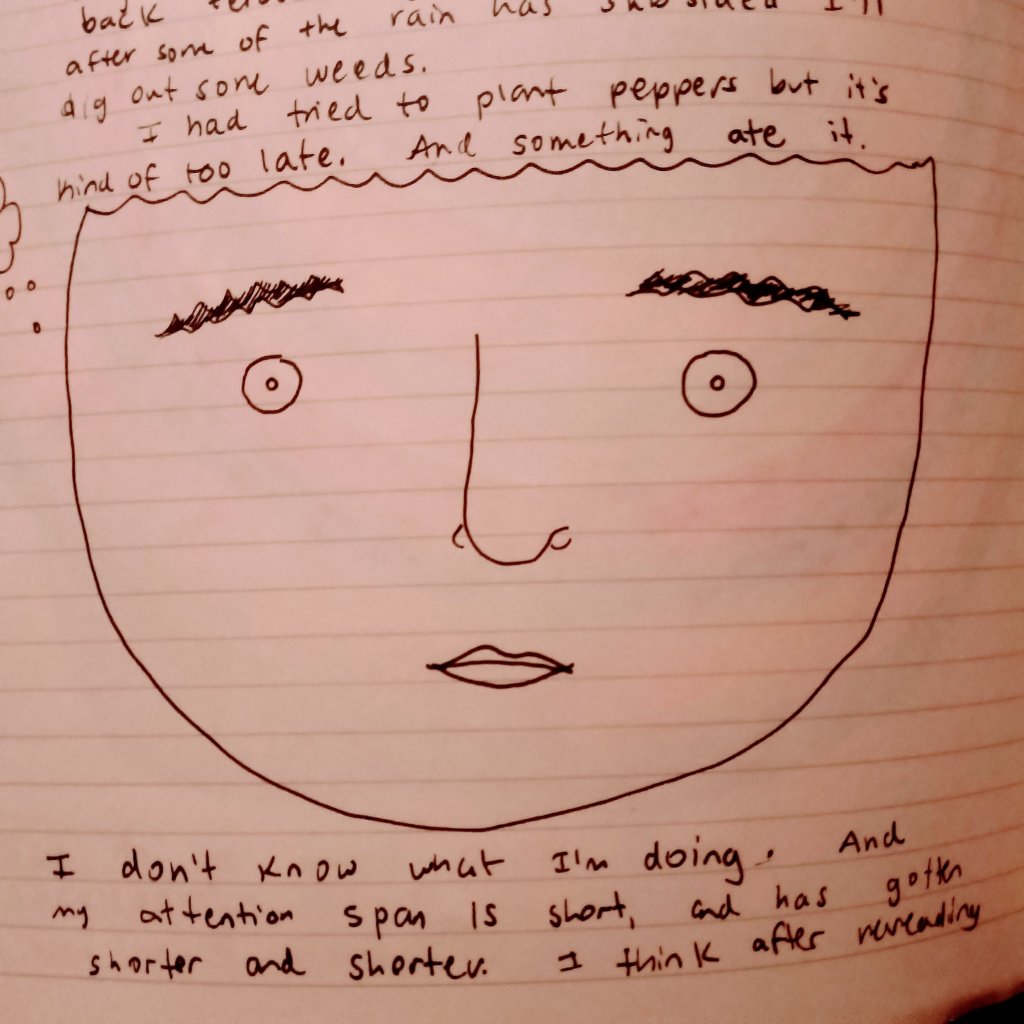 back
after some of the rain has subsided I'll
dig out some weeds.
I had tried to plant peppers but it's
kind of too late. And something ate it.
I don't know what I'm doing. And
my attention span is short, and has gotten
shorter and shorter. I think after rereading